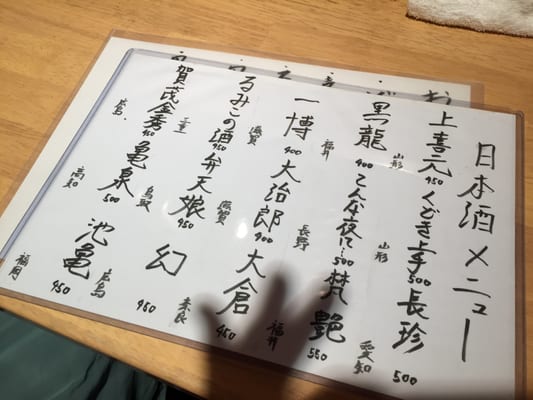 日本酒メニュー
上喜元 450 くどき上手 500 長珍 500
山形 山形 愛知
黒龍 400 こんな夜に… 500 梵 艶 550
福井 長野 福井
一博 400 大治郎 400 大倉 450
滋賀 滋賀 奈良
るみこの酒 450 弁天娘 450 幻 450
三重 鳥取 広島
賀茂金秀 450 亀泉 500 池亀 450
広島 高知 福岡